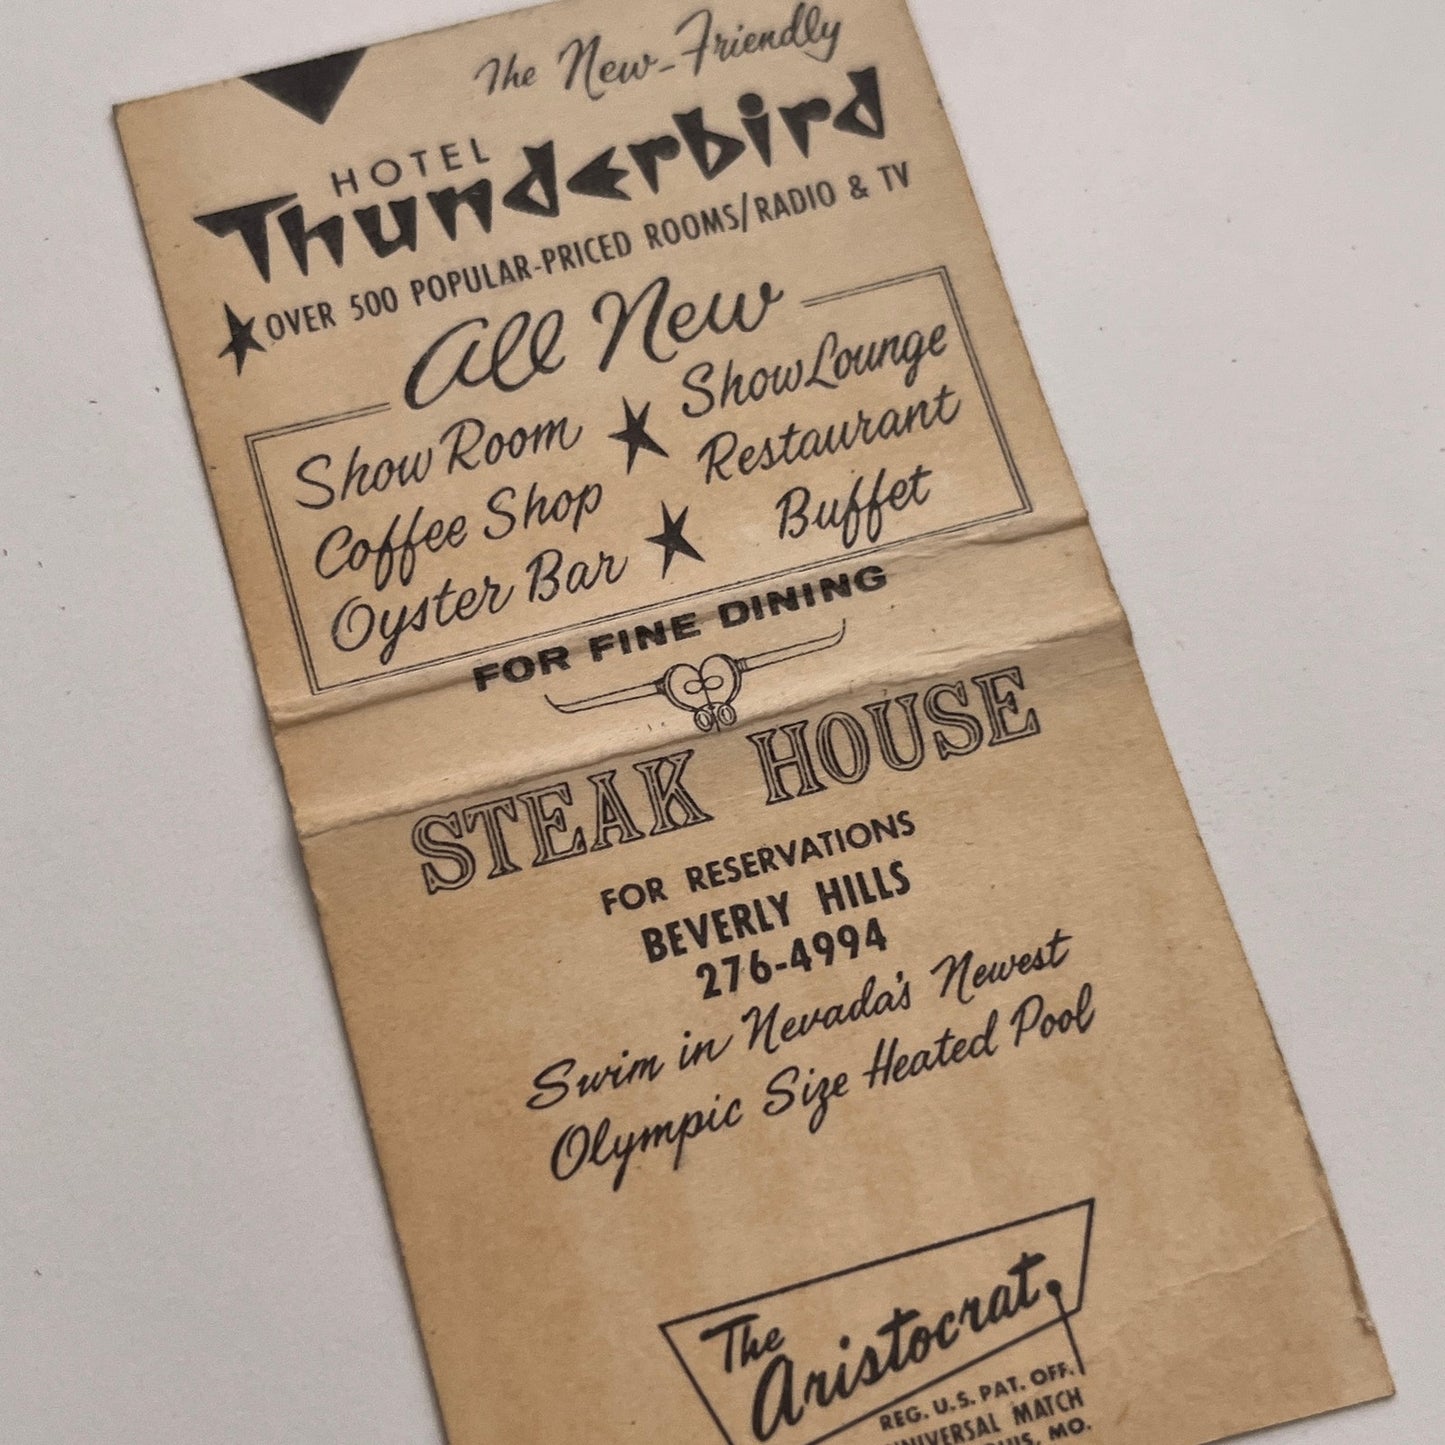 The New-Friendly
HOTEL
Thunderbird
OVER 500 POPULAR-PRICED ROOMS/RADIO & TV
All New
Show Room ShowLounge
Coffee Shop Restaurant
Oyster Bar Buffet
FOR FINE DINING
STEAK HOUSE
FOR RESERVATIONS
BEVERLY HILLS
276-4994
Swim in Nevada's Newest
Olympic Size Heated Pool
The
Aristocrat
REG. U.S. PAT. OFF.
MATCH
MO.